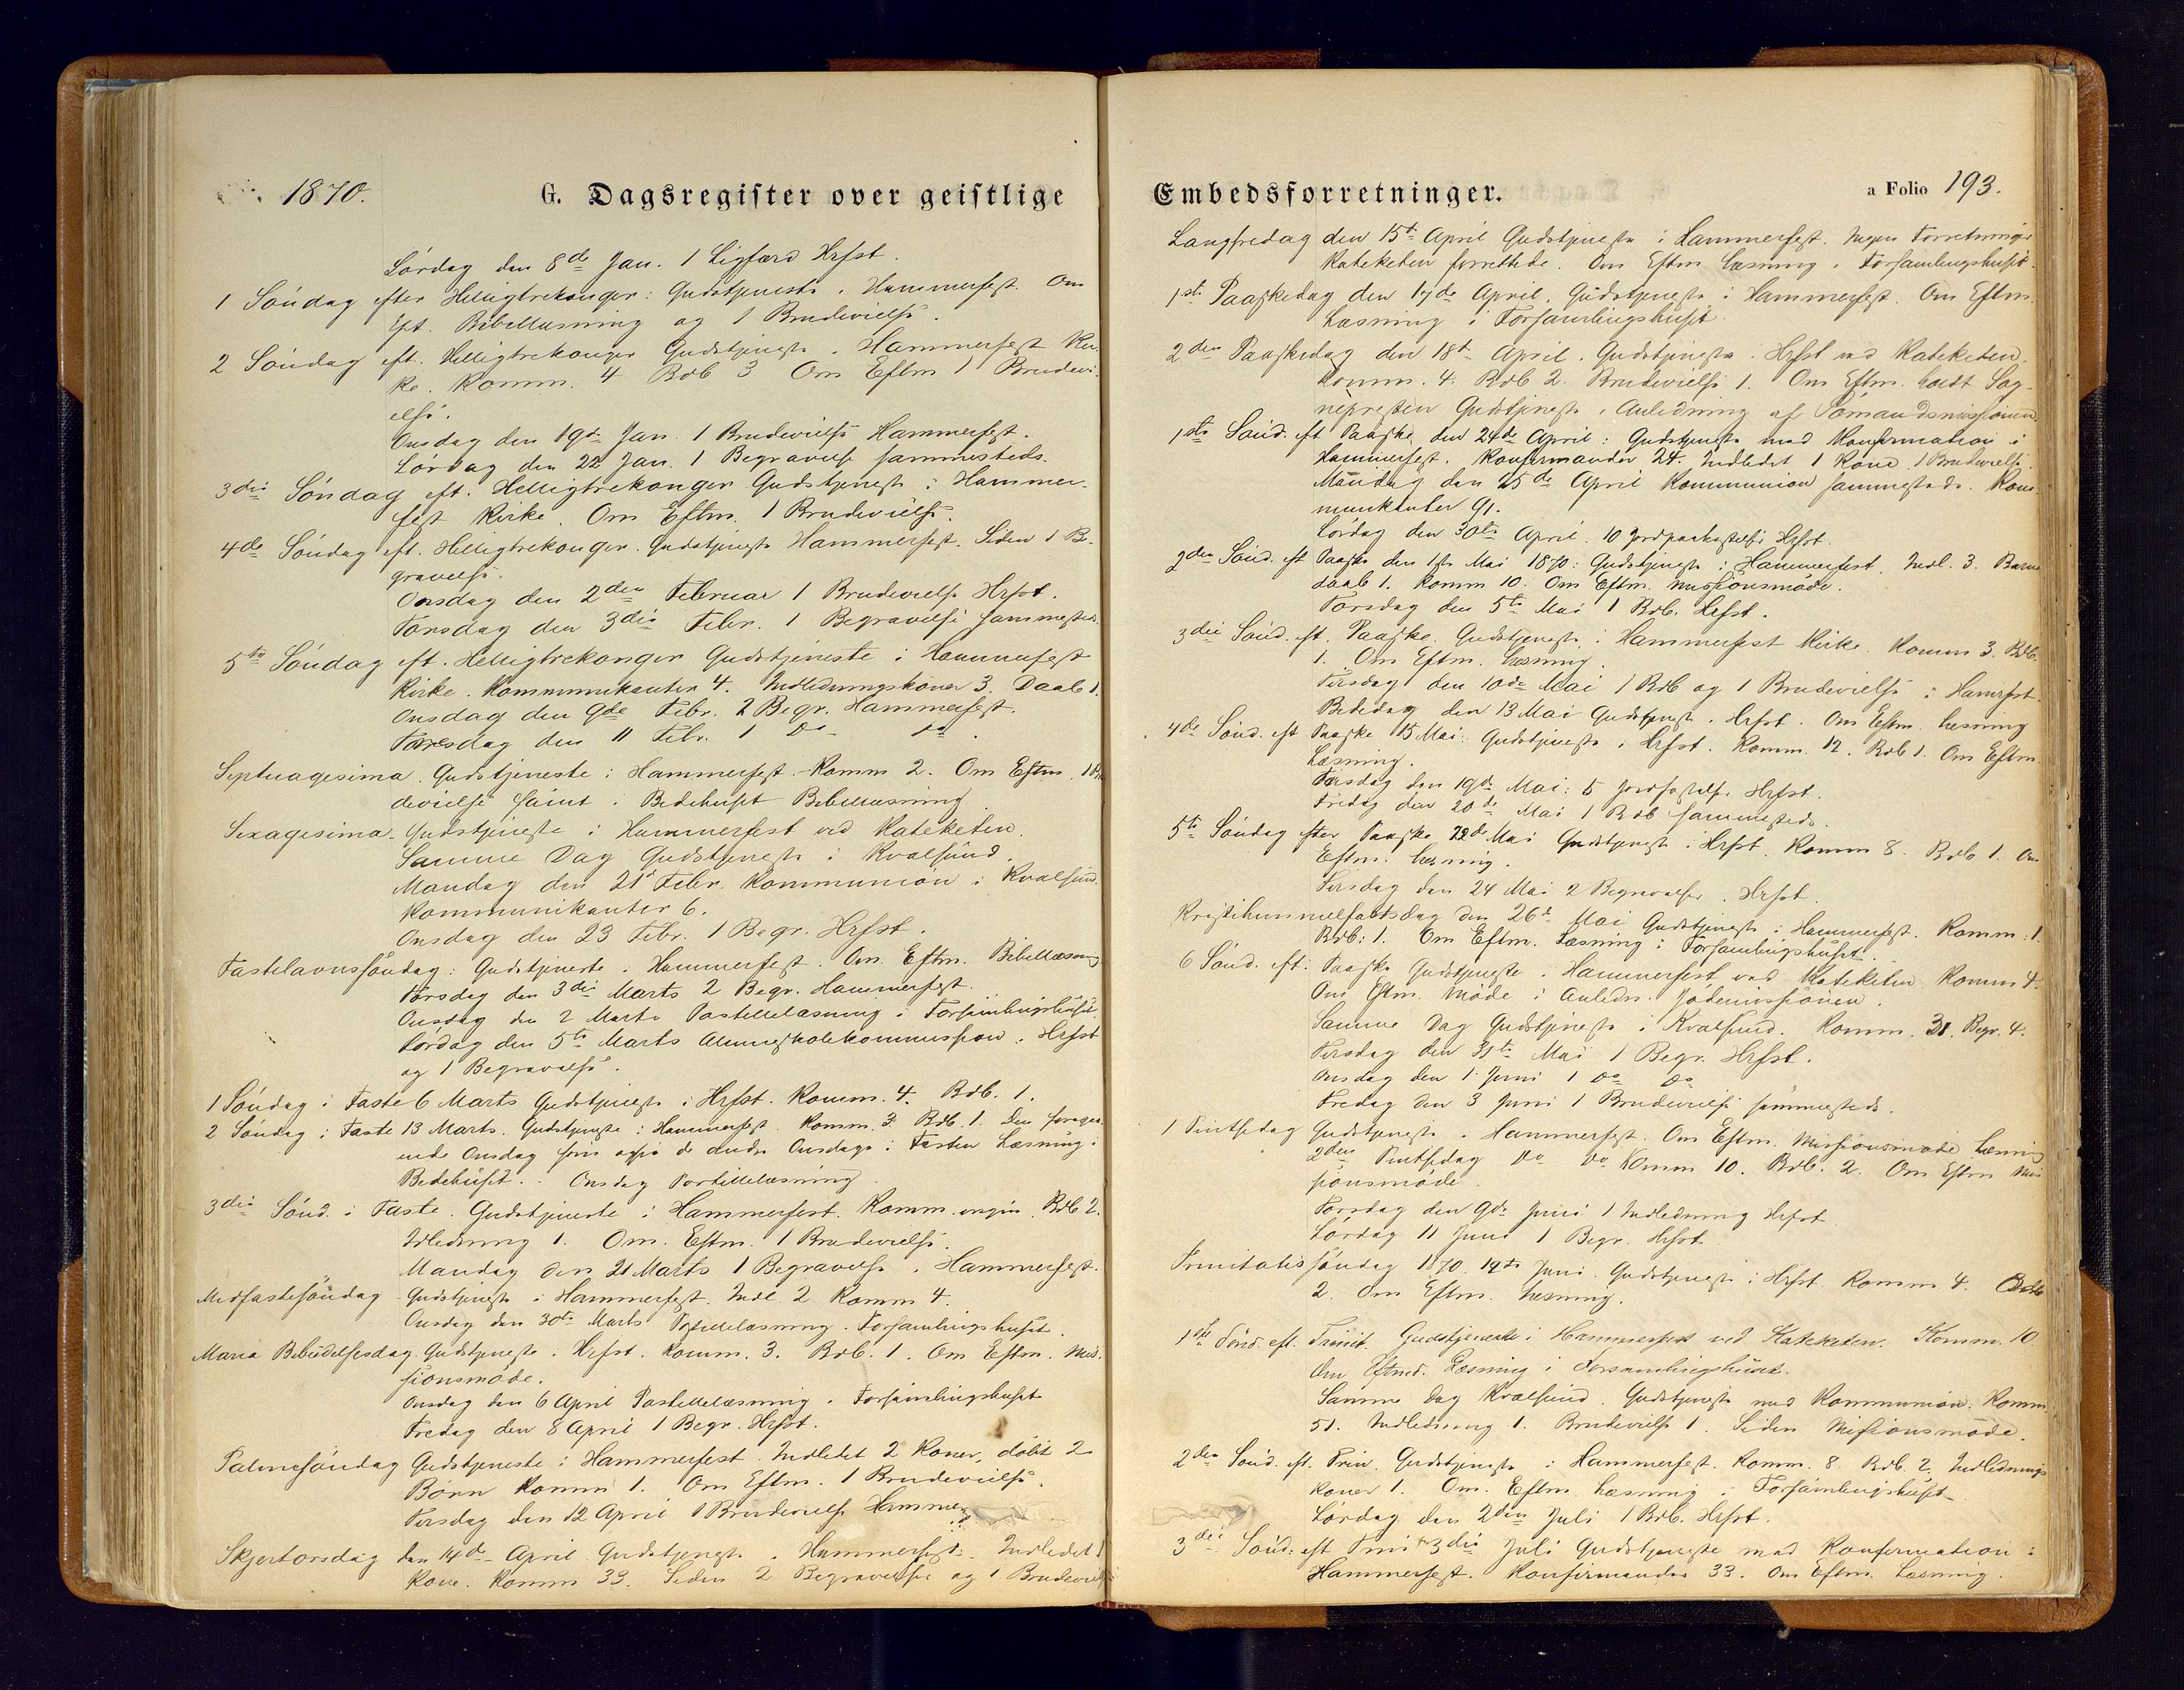 1870.
G. Dagsregister over geistlige
Lördag den 8de Jan. 1 Ligfærd Hrfst.
1 Söndag efter Helligtrekonger: Gudstjeneste i Hammerfest. Om
Eft. Bibellæsning og 1 Brudevielse.
2 Söndag eft. Helligtrekonger Gudstjeneste i Hammerfest Kir-
ke. Komm. 4 Bdb 3 Om Eftm 1 Brudevi-
else.
Onsdag den 19de Jan. 1 Brudevielse Hammerfest.
Lördag den 22 Jan. 1 Begravelse sammesteds.
3die Söndag eft. Helligtrekonger Gudstjeneste i Hammer-
fest Kirke. Om Eftm. 1 Brudevielse.
4de Söndag eft. Helligtrekonger. Gudstjeneste Hammerfest. Siden 1 Be-
gravelse.
Onsdag den 2den Februar 1 Brudevielse Hrfst.
Torsdag den 3die Febr. 1 Begravelse sammesteds.
5te Söndag eft. Helligtrekonger Gudstjeneste i Hammerfest
Kirke. Kommunikanter 4. Indledningskoner 3. Daab 1.
Onsdag den 9de Febr. 2 Begr. Hammerfest.
den 11 Febr. 1 Do Do.
Septuagesima. Gudstjeneste i Hammerfest. Komm 2. Om Eftm. 1 Bru
devielse samt i Bedehuset Bibellæsning.
Sexagesima. Gudstjeneste i Hammerfest ved Kateketen.
Samme Dag Gudstjeneste i Kvalsund.
Mandag den 21de Febr. Kommunion i Kvalsund.
Kommunikanter 6.
Onsdag den 23 Febr. 1 Begr. Hrfst.
Fastelavnssöndag: Gudstjeneste i Hammerfest. Om Eftm. Bibellæsning
Torsdag den 3die Marts 2 Begr. Hammerfest.
Onsdag den 2 Marts Postillelæsning i Forsamlingshuset.
Lördag den 5te Marts Almueskolekommission i Hrfst
og 1 Begravelse.
1 Söndag i Faste 6 Marts Gudstjeneste i Hrfst. Komm. 4. Bdb. 1.
2 Söndag i Faste 13 Marts. Gudstjeneste i Hammerfest. Komm. 3. Bdb. 1. Den foregaa
ende Onsdag som ogsaa de andre Onsdage i Fasten Læsning i
Bedehuset. Onsdag Postillelæsning.
3die Sönd. i Faste. Gudstjeneste i Hammerfest. Komm. ingen. Bdb 2.
Indledning 1. Om. Eftm. 1 Brudevielse.
Mandag den 21 Marts 1 Begravelse i Hammerfest.
Midfastesöndag Gudstjeneste i Hammerfest. Indl 2. Komm 4.
Onsdag den 30te Marts Postillelæsning i Forsamlingshuset.
Maria Bebudelsesdag. Gudstjeneste i Hrfst. Komm. 3. Bdb. 1. Om Eftm. Mis-
sionsmöde.
Onsdag den 6 April Postillelæsning i Forsamlingshuset
Fredag den 8 April 1 Begr. Hrfst.
Palmesöndag Gudstjeneste i Hammerfest. Indledet 2 Koner, döbt 2
Börn Komm 1. Om Eftm. 1 Brudevielse.
Tirsdag den 12 April 1 Brudevielse Hammer
Skjertorsdag den 14de April Gudstjeneste i Hammerfest. Indledet 1
Kone. Komm 33. Siden 2 Begravelser og 1 Brudevielse
Embedsforretninger.
a Folio 193.
Langfredag den 15de April Gudstjeneste i Hammerfest. Ingen Forretninger
Kateketen forrettede. Om Eftm læsning i Forsamlingshuset.
1ste Paaskedag den 17de April. Gudstjeneste i Hammerfest. Om Eftm.
Læsning i Forsamlingshuset.
2den Paaskedag den 18de April. Gudstjeneste i Hrfst ved Kateketen.
Komm. 4. Bdb 2. Brudevielse 1. Om Eftm. holdt Sog-
nepresten Gudstjeneste i Anledning af Sömandsmissionen.
1ste Sönd. eft Paaske den 24de April: Gudstjeneste med Konfirmation i
Hammerfest. Konfirmander 24. Indledet 1 Kone. 1 Brudevielse.
Mandag den 25de April Kommunion sammesteds. Kom-
munikanter 91.
Lördag den 30te April. 10 Jordpaakastelse Hrfst.
2den Sönd. eft Paaske den 1ste Mai 1870: Gudstjeneste i Hammerfest. Indl. 3. Barne
daab 1. Komm 10. Om Eftm. Missionsmöde.
Torsdag den 5te Mai 1 Bdb. Hrfst.
3die Sönd. eft. Paaske. Gudstjeneste i Hammerfest Kirke. Komm 3. Bdb.
1. Om Eftm. Læsning.
Tirsdag den 10de Mai 1 Bdb og 1 Brudevielse i Hamrfst.
Bededag den 13 Mai Gudstjeneste i Hrfst. Om Eftm. læsning
4de Sönd. eft Paaske 15 Mai: Gudstjeneste i Hrfst. Komm. 12. Bdb 1. Om Eftm
Læsning.
Torsdag den 19de Mai: 5 Jordfæstelse Hrfst.
Fredag den 20de Mai 1 Bdb sammesteds.
5te Söndag efter Paaske 22de Mai Gudstjeneste i Hrfst. Komm 8. Bdb 1. Om
Eftm. læsning.
Tirsdag den 24 Mai 2 Begravelser i Hrfst.
Kristihimmelfartsdag den 26de Mai Gudstjeneste i Hammerfest. Komm: 1.
Bdb: 1. Om Eftm. Læsning i Forsamlingshuset.
6 Sönd. eft: Paaske Gudstjeneste i Hammerfest ved Kateketen Komm 4.
Om Eftm. Möde i Anledn. Jödemissionen.
Samme Dag Gudstjeneste i Kvalsund. Komm. 31. Begr. 4.
Tirsdag den 31te Mai 1 Begr. Hrfst.
Onsdag den 1 Juni 1 Do Do
Fredag den 3 Juni 1 Brudevielse sammesteds.
1 Pintsedag Gudstjeneste i Hammerfest. Om Eftm. Missionsmöde Læsning
2den Pintsedag Do Do Komm 10. Bdb. 2. Om Eftm Mis
sionsmöde.
Torsdag den 9de Juni 1 Indledning Hrfst
Lördag 11 Juni 1 Begr. Hrfst.
Trinitatissöndag 1870. 12te Juni. Gudstjeneste i Hrfst. Komm 4. Bdb
2. Om Eftm. Læsning.
1ste Sönd. eft. Trinit. Gudstjeneste i Hammerfest ved Kateketen. Komm. 10.
Om Eftmd. Læsning i Forsamlingshuset.
Samme Dag Kvalsund. Gudstjeneste med Kommunion: Komm.
51. Indledning 1. Brudevielse 1. Siden Missionsmöde.
2den Sönd. eft. Trin. Gudstjeneste i Hammerfest. Komm. 8. Bdb 2. Indlednings
koner 1. Om. Eftm. Læsning i Forsamlingshuset
Lördag den 2den Juli 1 Bdb. Hrfst.
3die Sönd. eft Trin 3die Juli Gudstjeneste med Konfirmation i
Hammerfest. Konfirmander 33. Om Eftm. Læsning.